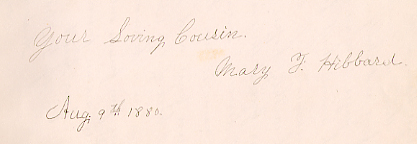 Your Loving Cousin.
Mary F. Hibbard.
Aug. 9th 1880.